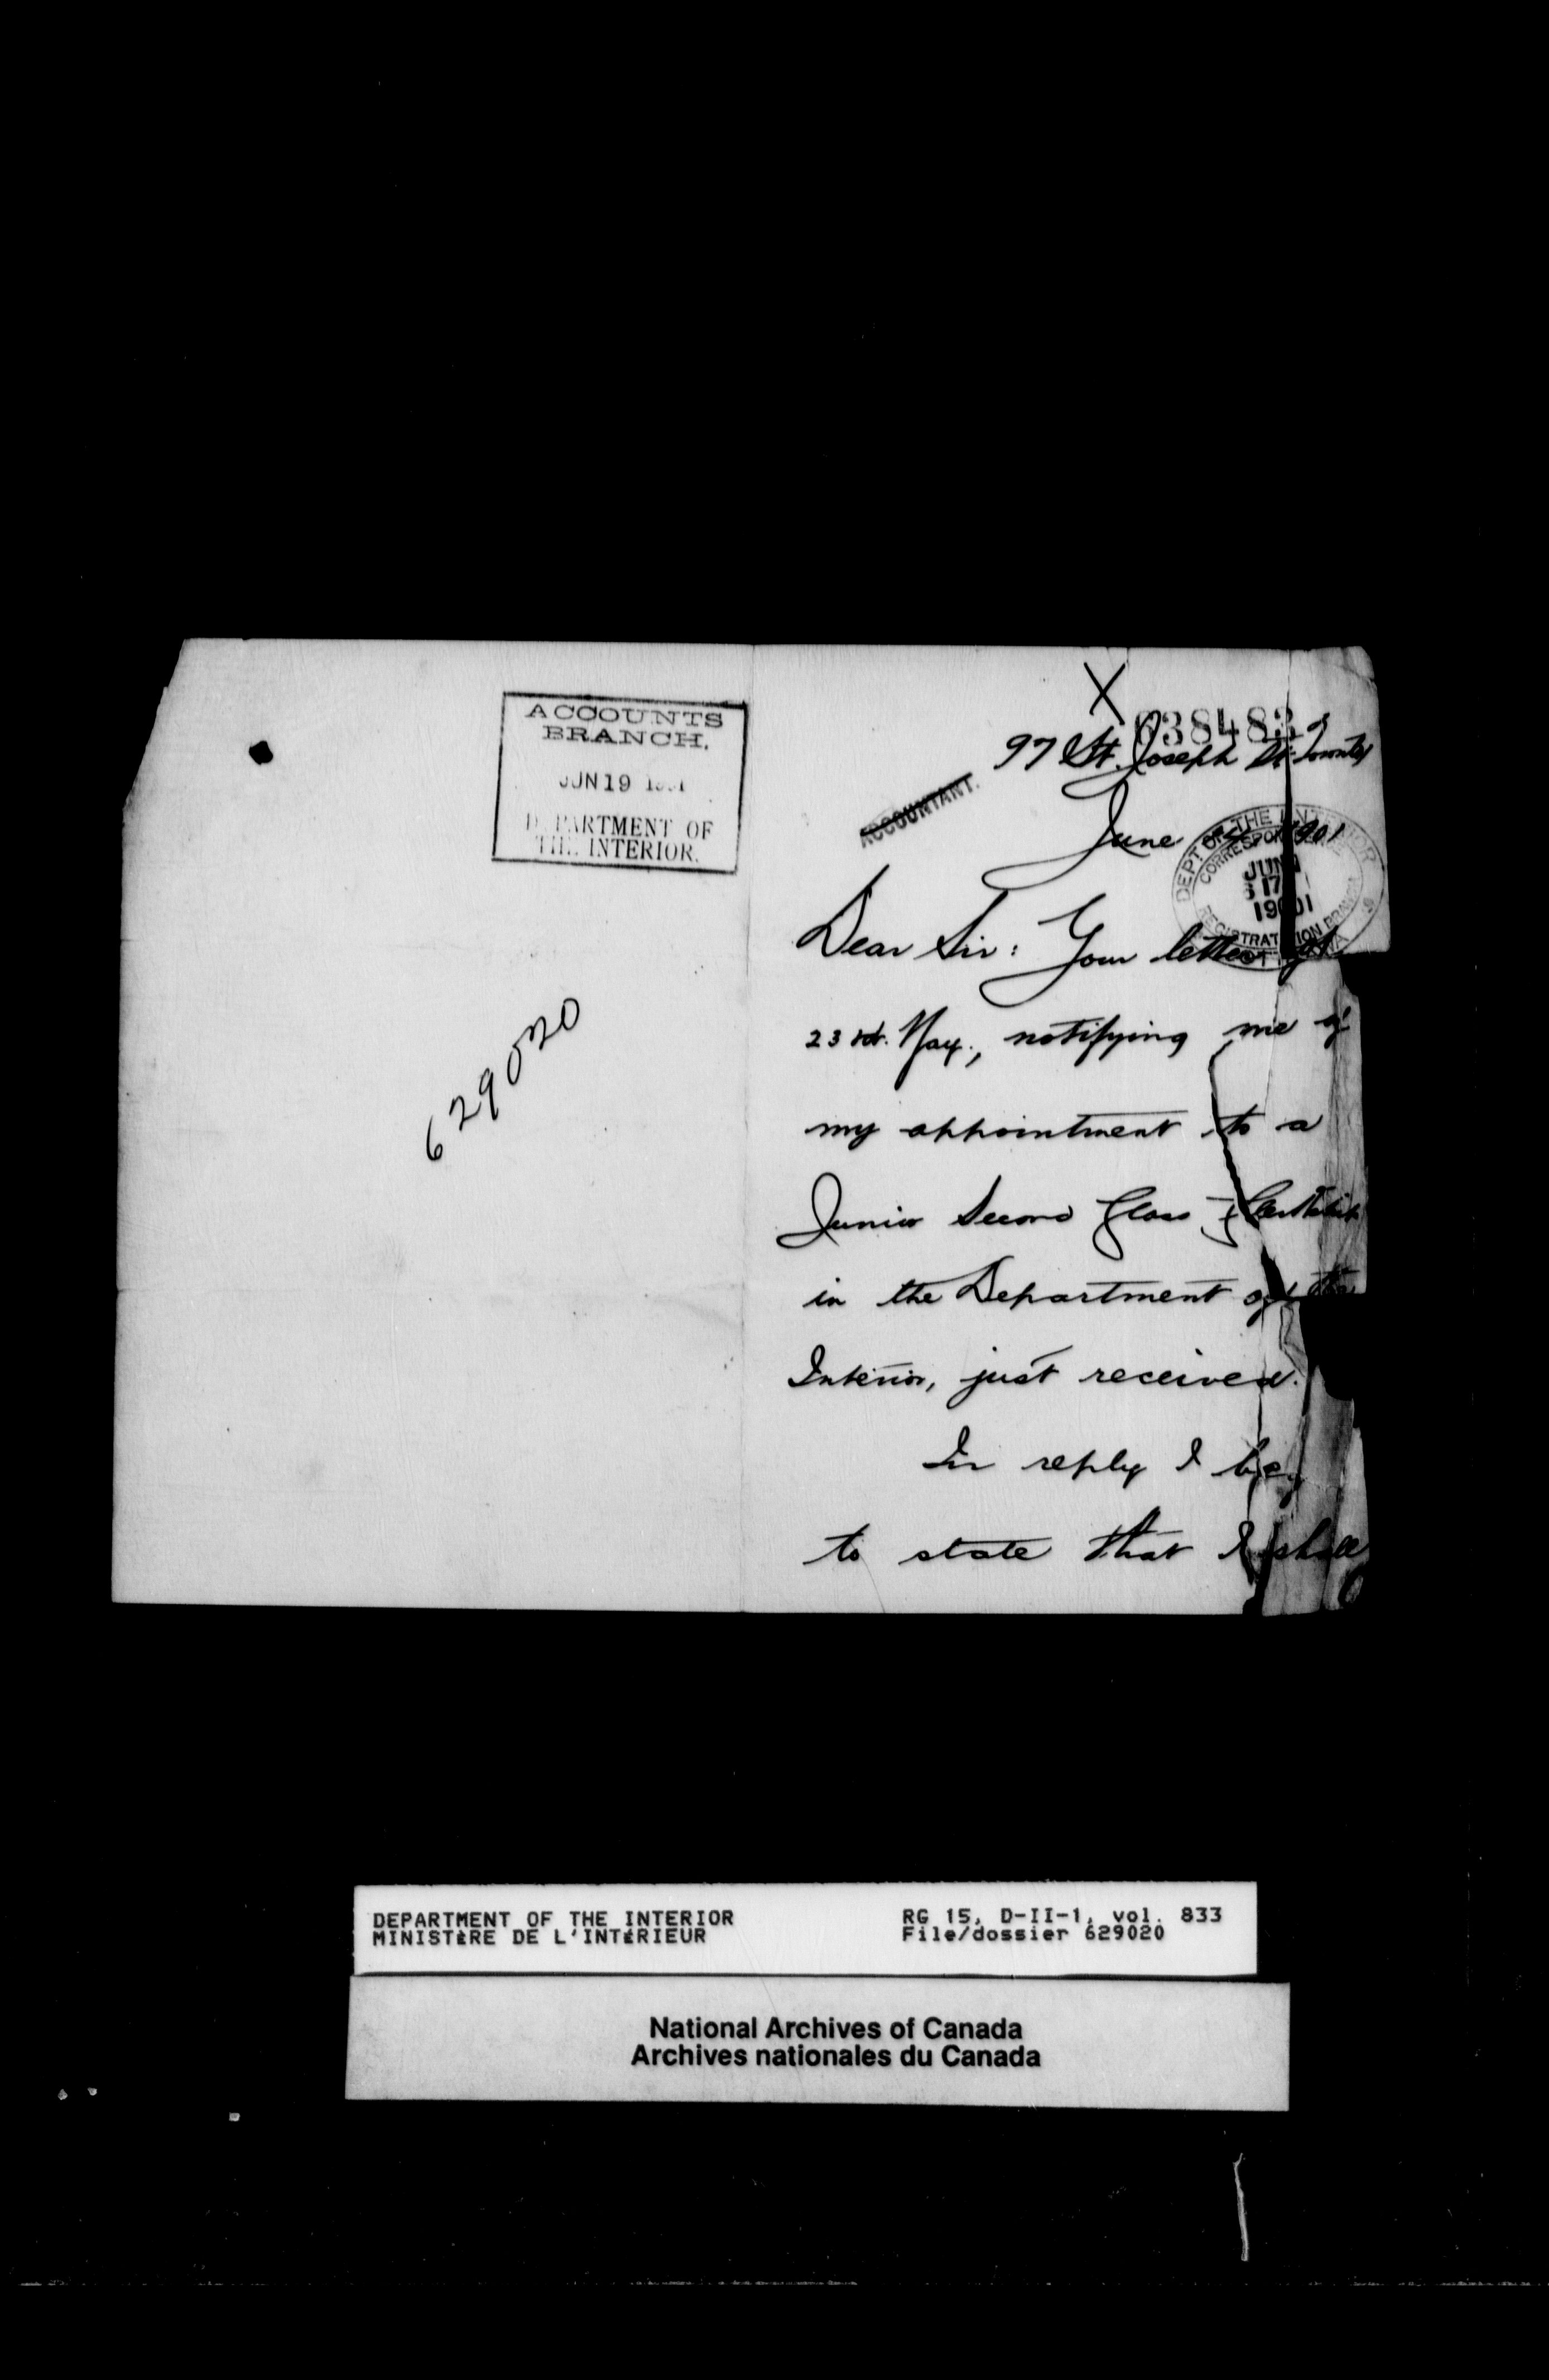 ACCOUNTS
BRANCH.
JUN 19 1901
DEPARTMENT OF
THE INTERIOR.
629020
X
638483
97 St. Joseph St. Toronto
ACCOUNTANT.
June 1901
DEPT OF THE INTERIOR
CORRESPONDENCE
JUN
17
1901
REGISTRATION BRANCH
Dear Sir: Your letter of
23rd. May., notifying me of
my appointment to a
Junior Second Class Clerkship
in the Department of the
Interior, just received.
In reply I beg
to state that I shall
DEPARTMENT OF THE INTERIOR
MINISTÈRE DE L'INTÉRIEUR
RG 15, D-II-1, vol. 833
File/dossier 629020
National Archives of Canada
Archives nationales du Canada